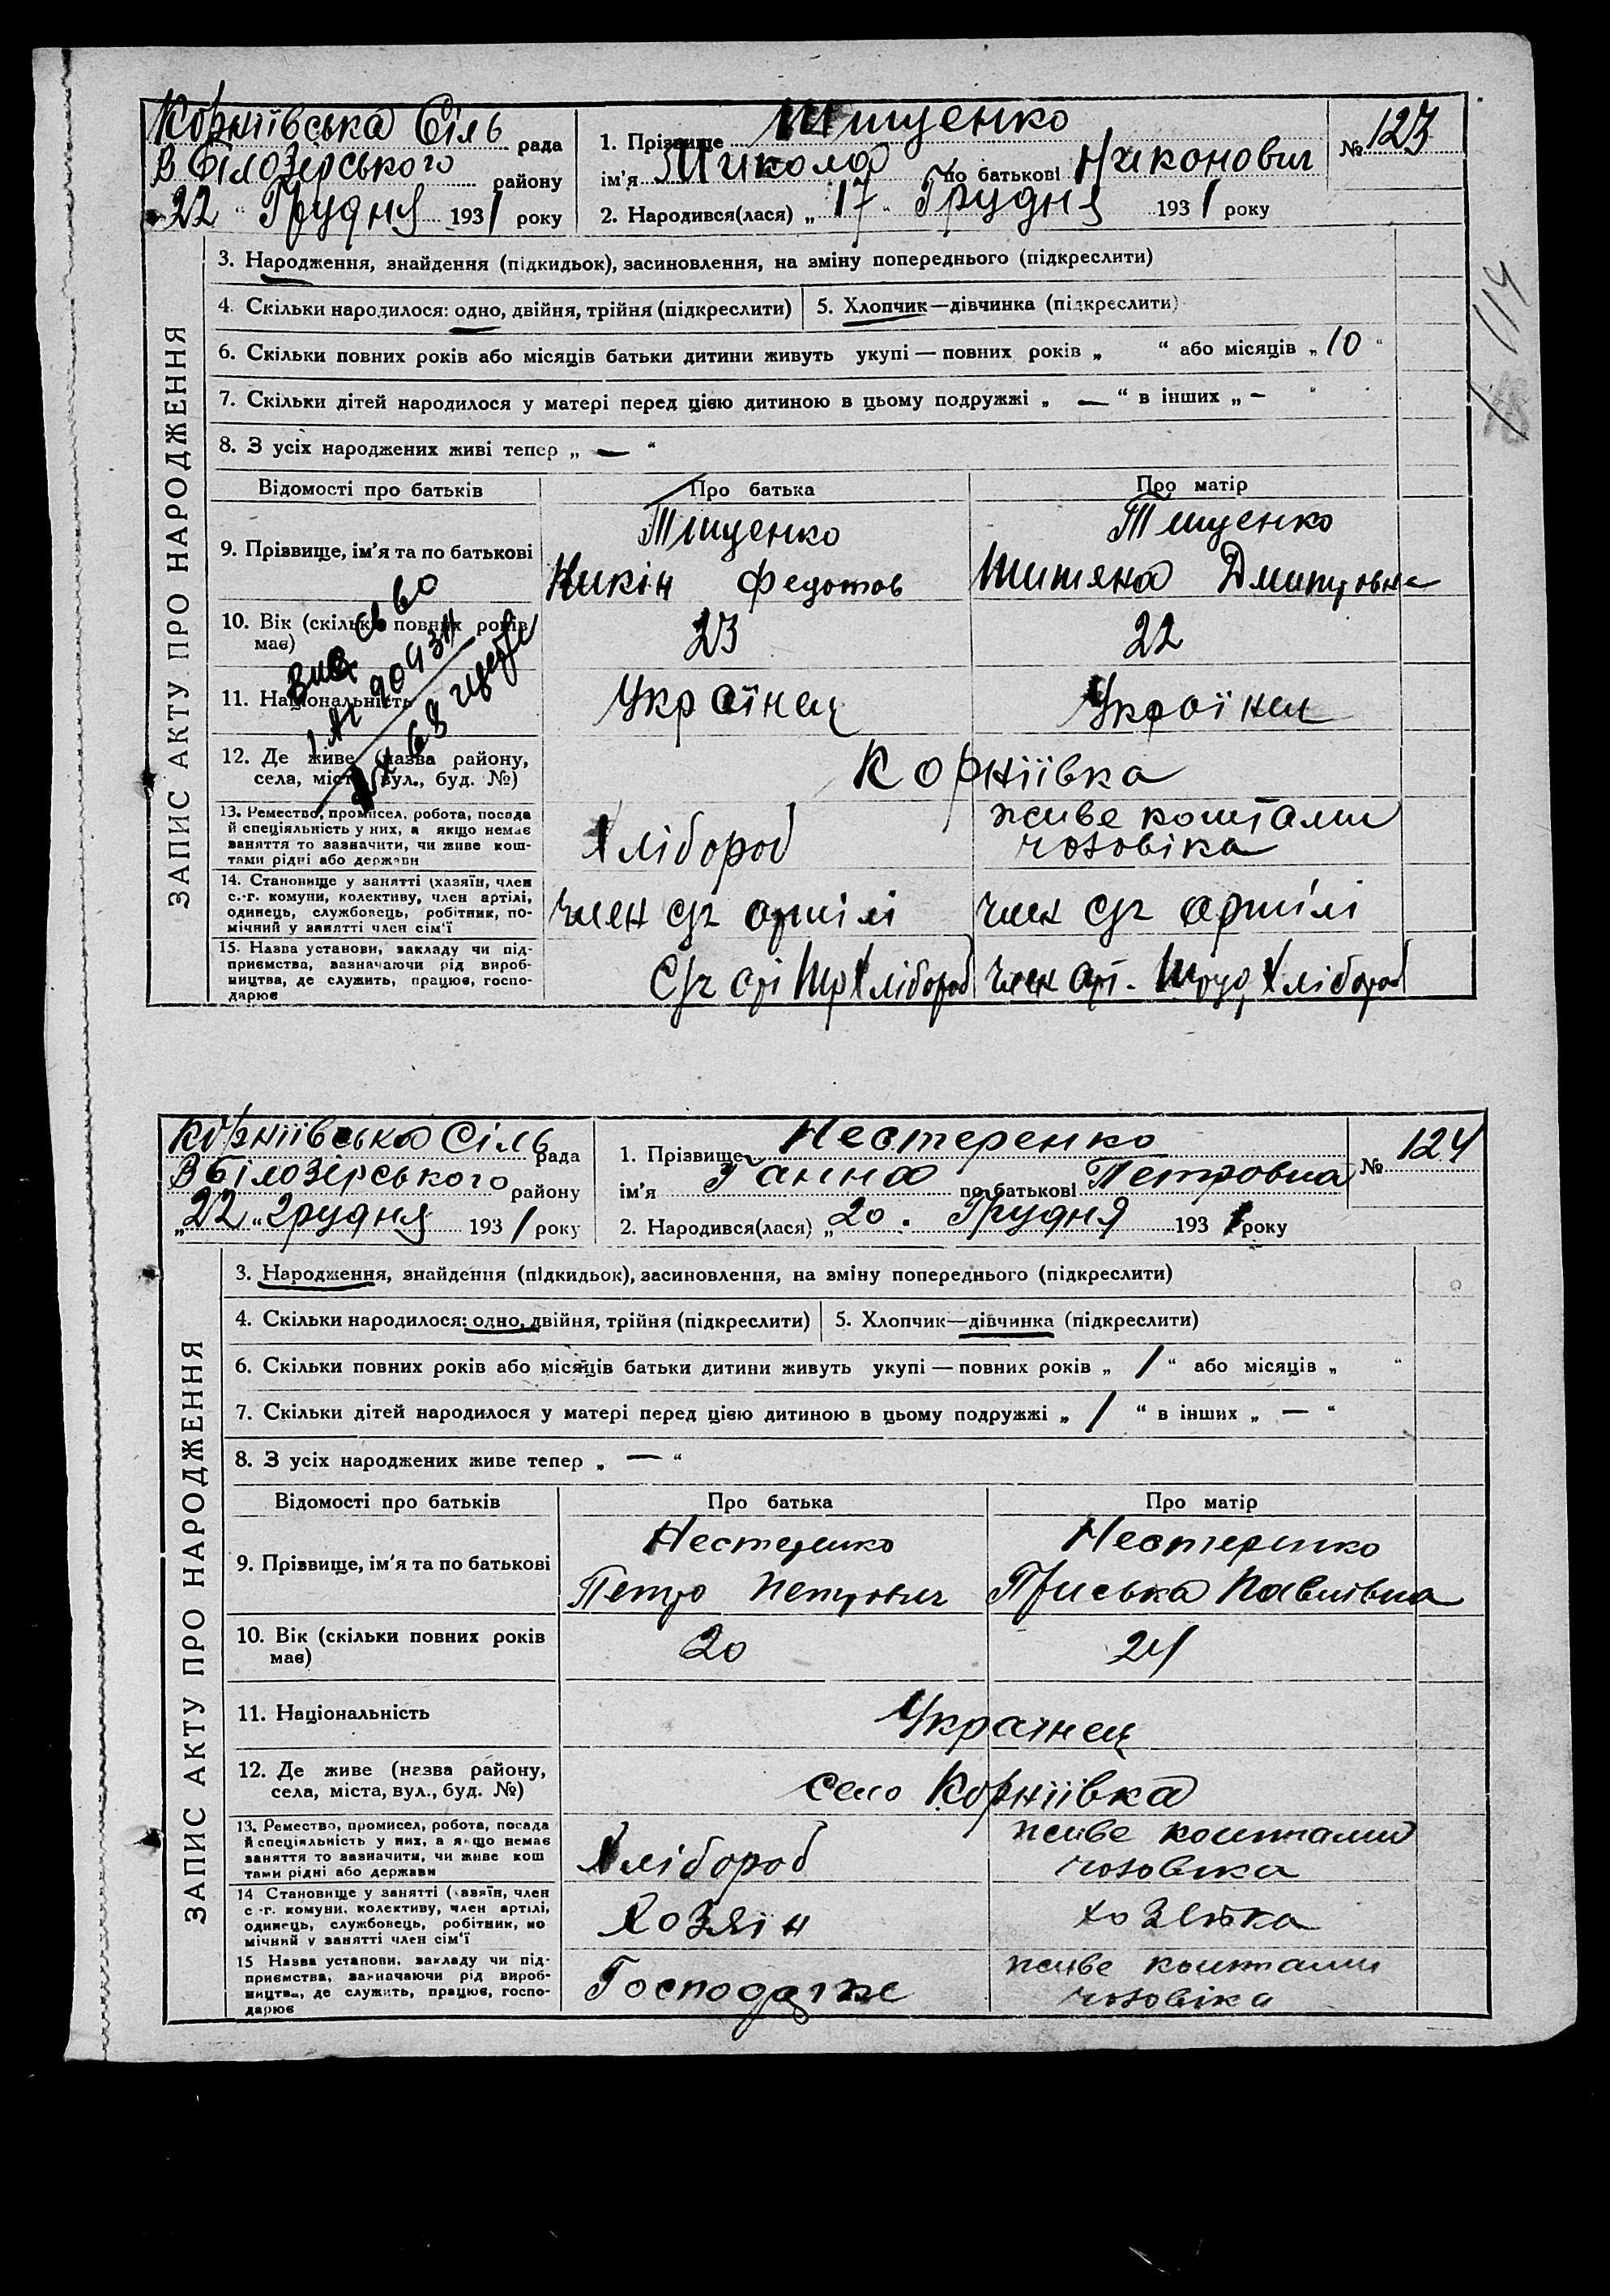 Корніївська Сіль рада
В Білозірського району
22 " Грудня 1931 року
1. Прізвище Тищенко
ім'я Микола по батькові Никонович
2. Народився(лася) „ 17 " Грудня 1931 року
№ 123
114
ЗАПИС АКТУ ПРО НАРОДЖЕННЯ
3. Народження, знайдення (підкидьок), засиновлення, на зміну попереднього (підкреслити)
4. Скільки народилося: одно, двійня, трійня (підкреслити) 5. Хлопчик—дівчинка (підкреслити)
6. Скільки повних років або місяців батьки дитини живуть укупі — повних років „ “ або місяців „ 10 “
7. Скільки дітей народилося у матері перед цією дитиною в цьому подружжі „ — “ в інших „ — “
8. З усіх народжених живі тепер „ — “
Відомості про батьків Про батька Про матір
9. Прізвище, ім'я та по батькові
Тищенко
Никін Федотов
Тищенко
Титяна Дмитровна
10. Вік (скільки повних років має) 23 22
11. Національність Українец Українец
12. Де живе (назва району, села, міста, вул., буд. №) Корніївка
13. Ремество, промисел, робота, посада
й спеціяльність у них, а якщо немає
заняття то зазначити, чи живе кош-
тами рідні або держави
Хлібороб
живе коштами
чоловіка
14. Становище у занятті (хазяїн, член
с.-г. комуни, колективу, член артілі,
одинець, службовець, робітник, по-
мічний у занятті член сім'ї
член сг артілі член сг артілі
15. Назва установи, закладу чи під-
приємства, зазначаючи рід вироб-
ництва, де служить, працює, госпо-
дарює
Сг арт Тр Хлібороб член арт. Труд Хлібороб
Корніївська Сіль рада
В Білозірського району
„22 " Грудня 1931 року
1. Прізвище Нестеренко
ім'я Ганна по батькові Петровна
2. Народився(лася) „ 20 . Грудня 1931 року
№ 124
ЗАПИС АКТУ ПРО НАРОДЖЕННЯ
3. Народження, знайдення (підкидьок), засиновлення, на зміну попереднього (підкреслити)
4. Скільки народилося: одно, двійня, трійня (підкреслити) 5. Хлопчик—дівчинка (підкреслити)
6. Скільки повних років або місяців батьки дитини живуть укупі — повних років „ 1 “ або місяців „ “
7. Скільки дітей народилося у матері перед цією дитиною в цьому подружжі „ 1 “ в інших „ — “
8. З усіх народжених живе тепер „ — “
Відомості про батьків Про батька Про матір
9. Прізвище, ім'я та по батькові
Нестеренко
Петро Петрович
Нестеренко
Пріська Павлівна
10. Вік (скільки повних років має) 20 24
11. Національність Українец
12. Де живе (назва району, села, міста, вул., буд. №) село Корніївка
13. Ремество, промисел, робота, посада
й спеціяльність у них, а якщо немає
заняття то зазначити, чи живе кош
тами рідні або держави
Хлібороб
живе коштами
чоловіка
14 Становище у занятті (хазяїн, член
с.-г. комуни, колективу, член артілі,
одинець, службовець, робітник, по
мічний у занятті член сім'ї
Хозяін хозяйка
15 Назва установи, закладу чи під-
приємства, зазначаючи рід вироб-
ництва, де служить, працює, госпо-
дарює
живе коштами
чоловіка